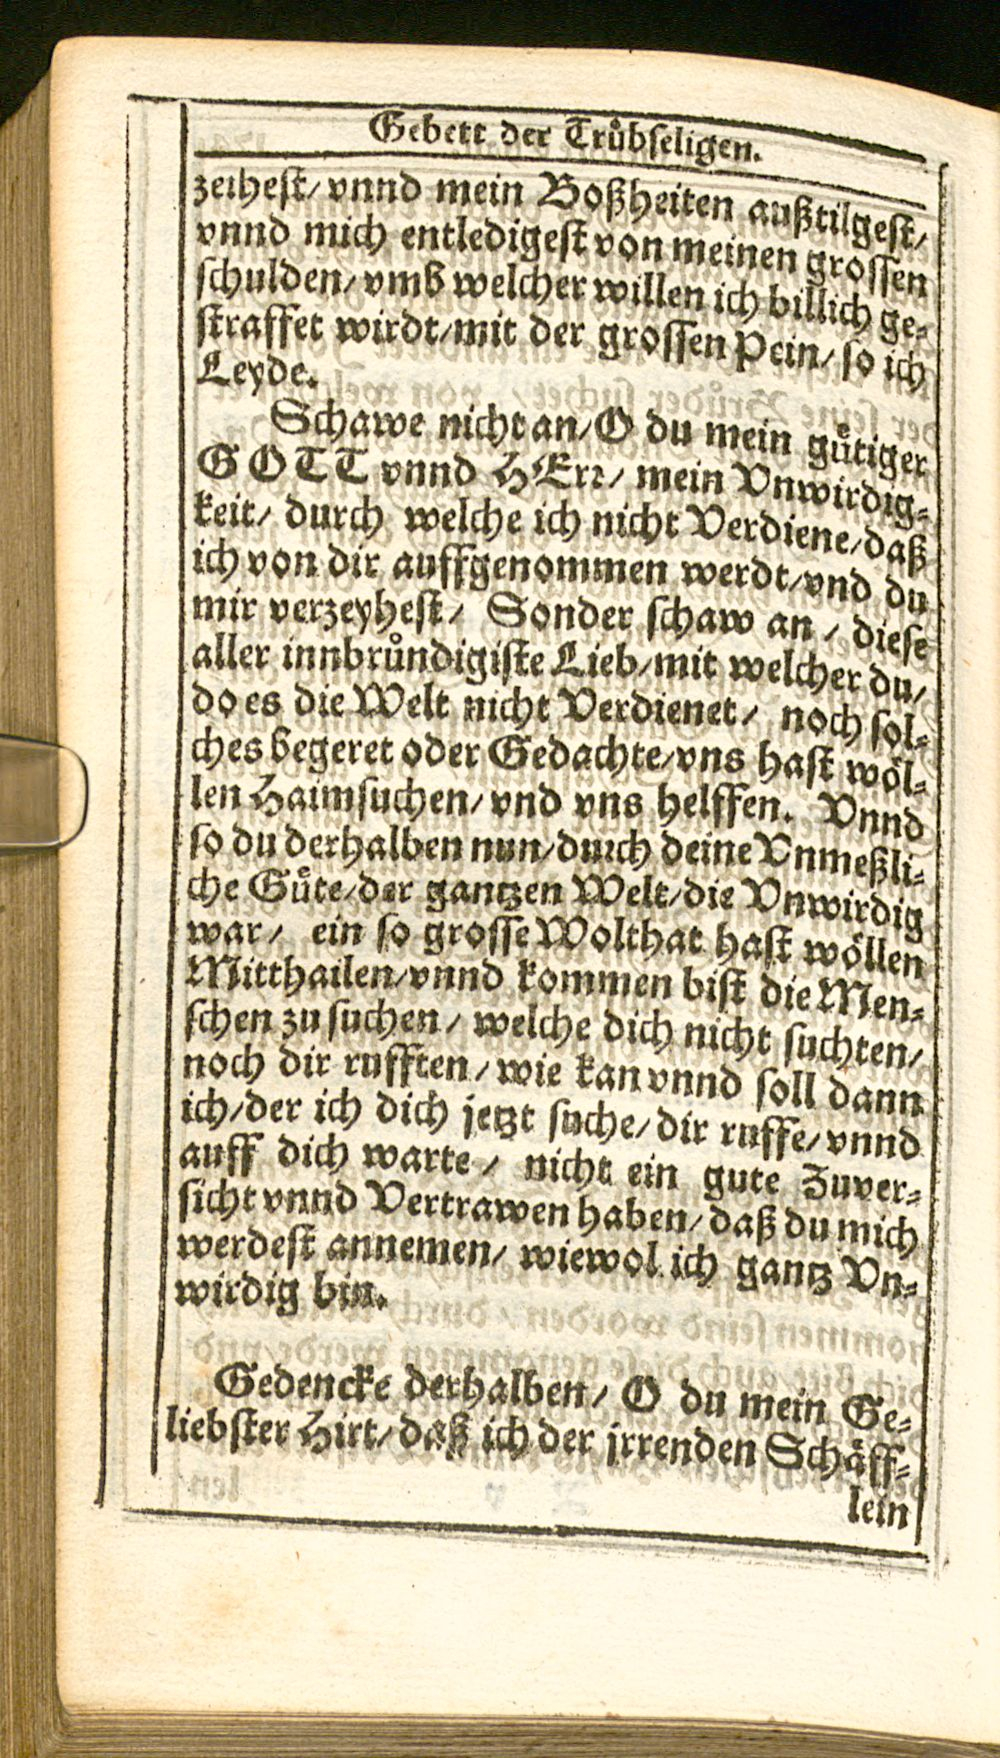 Gebett der Trůbseligen.
zeihest/ vnnd mein Boßheiten außtilgest/
vnnd mich entledigest von meinen grossen
schulden/ vmb welcher willen ich billich ge-
straffet wirdt/ mit der grossen Pein/ so ich
Leyde.
Schawe nicht an/ O du mein gůtiger
GOTT vnnd HErr/ mein Vnwirdig-
keit/ durch welche ich nicht Verdiene/ daß
ich von dir auffgenommen werdt/ vnd du
mir verzeyhest/ Sonder schaw an / diese
aller innbrůndigiste Lieb/ mit welcher du/
do es die Welt nicht Verdienet/ noch sol-
ches begeret oder Gedachte/ vns hast wöl-
len Haimsuchen/ vnd vns helffen. Vnnd
so du derhalben nun/ durch deine Vnmeßli-
che Gůte/ der gantzen Welt/ die Vnwirdig
war/ ein so grosse Wolthat hast wöllen
Mitthailen/ vnnd kommen bist die Men-
schen zu suchen/ welche dich nicht suchten/
noch dir rufften/ wie kan vnnd soll dann
ich/ der ich dich jetzt suche/ dir ruffe/ vnnd
auff dich warte / nicht ein gute Zuver-
sicht vnnd Vertrawen haben/ daß du mich
werdest annemen/ wiewol ich gantz Vn-
wirdig bin.
Gedencke derhalben/ O du mein Ge-
liebster Hirt/ daß ich der jrrenden Schäff-
lein